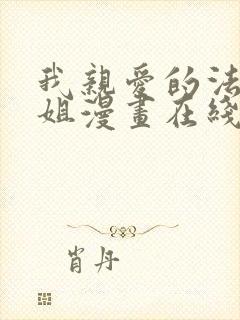 我親愛的法
姐漫畫在綫
肖丹